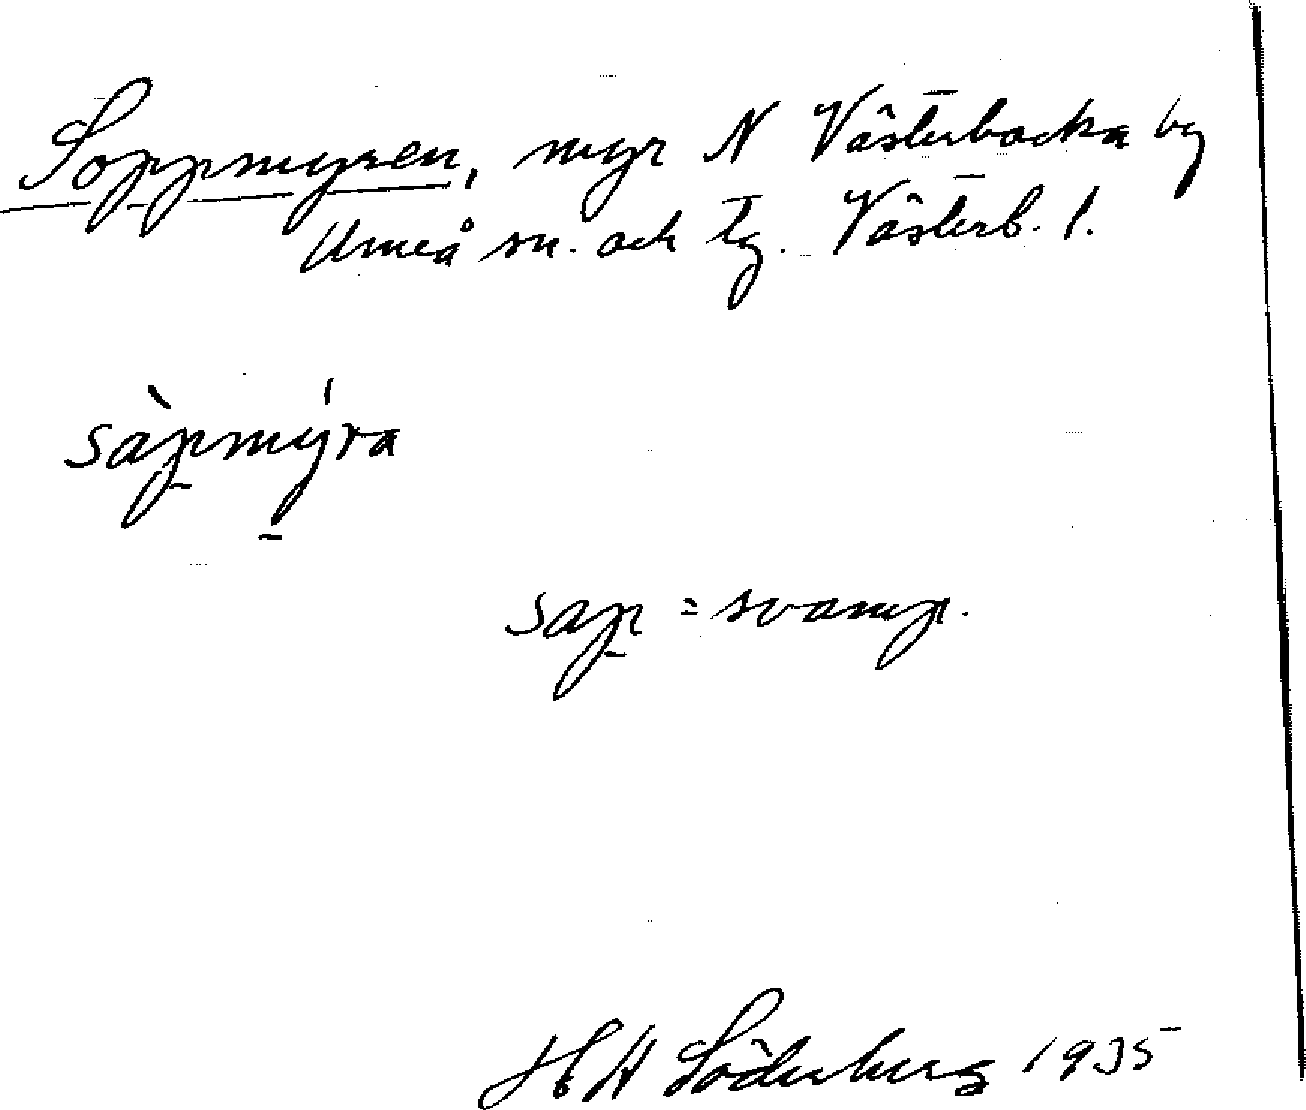 Soppmyren, myr N Västerbacka by
Umeå sn. och tg. Västerb. l.
sàpmýra
sap = svamp.
H H Söderberg 1935